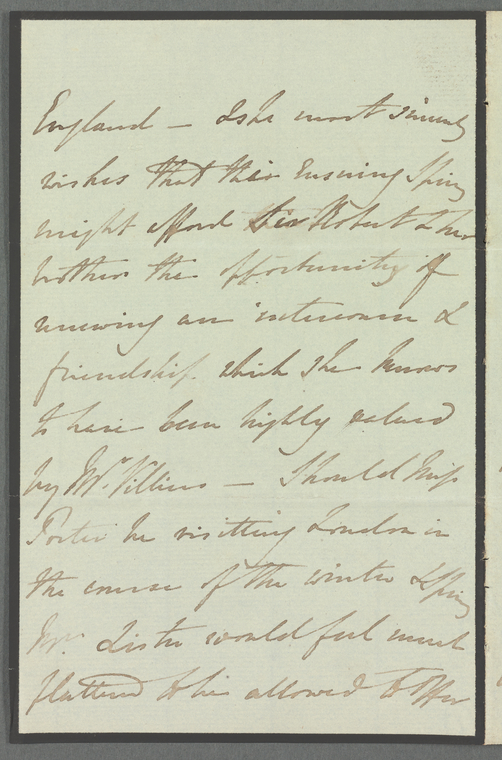 England — & she most sincerely
wishes that this Ensuing Spring
might afford Sir Robert & her
brother the opportunity of
renewing an intercourse &
friendship which she knows
to have been highly valued
by Mr. Villiers — Should Miss
Porter be visitting London in
the course of the winter & Spring
Mrs. Lister would feel much
flattered to be allowed to offer